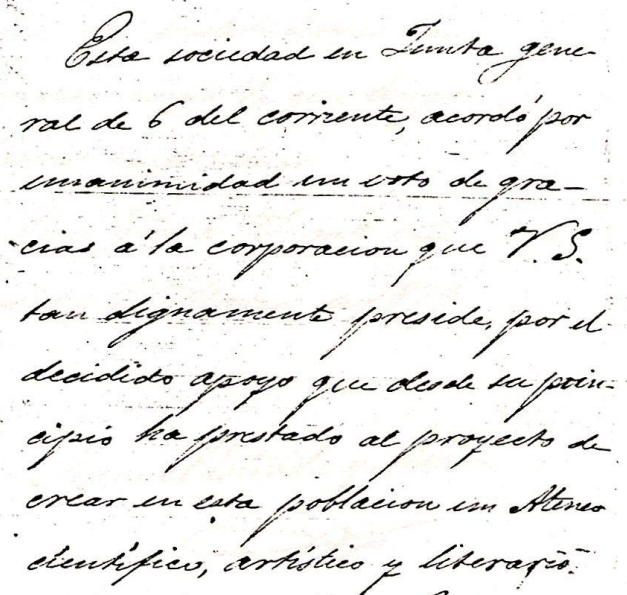 Esta sociedad en Junta gene-
ral de 6 del corriente, acordó por
unanimidad un voto de gra-
cias á la corporacion que V. S.
tan dignamente preside, por el
decidido apoyo que desde su prin-
cipio ha prestado al proyecto de
crear en esta poblacion un Ateneo
científico, artístico y literario.